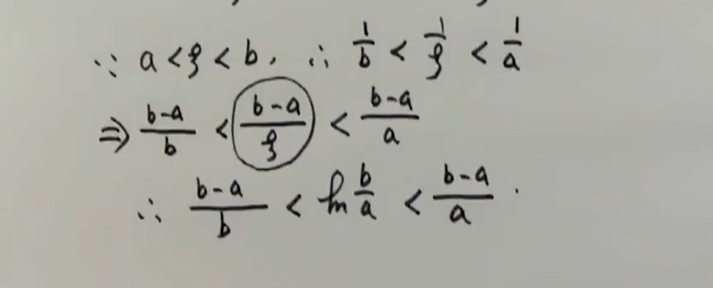 ∵ a < ξ < b, ∴ 1/b < 1/ξ < 1/a
⇒ (b-a)/b < (b-a)/ξ < (b-a)/a
∴ (b-a)/b < ln b/a < (b-a)/a .